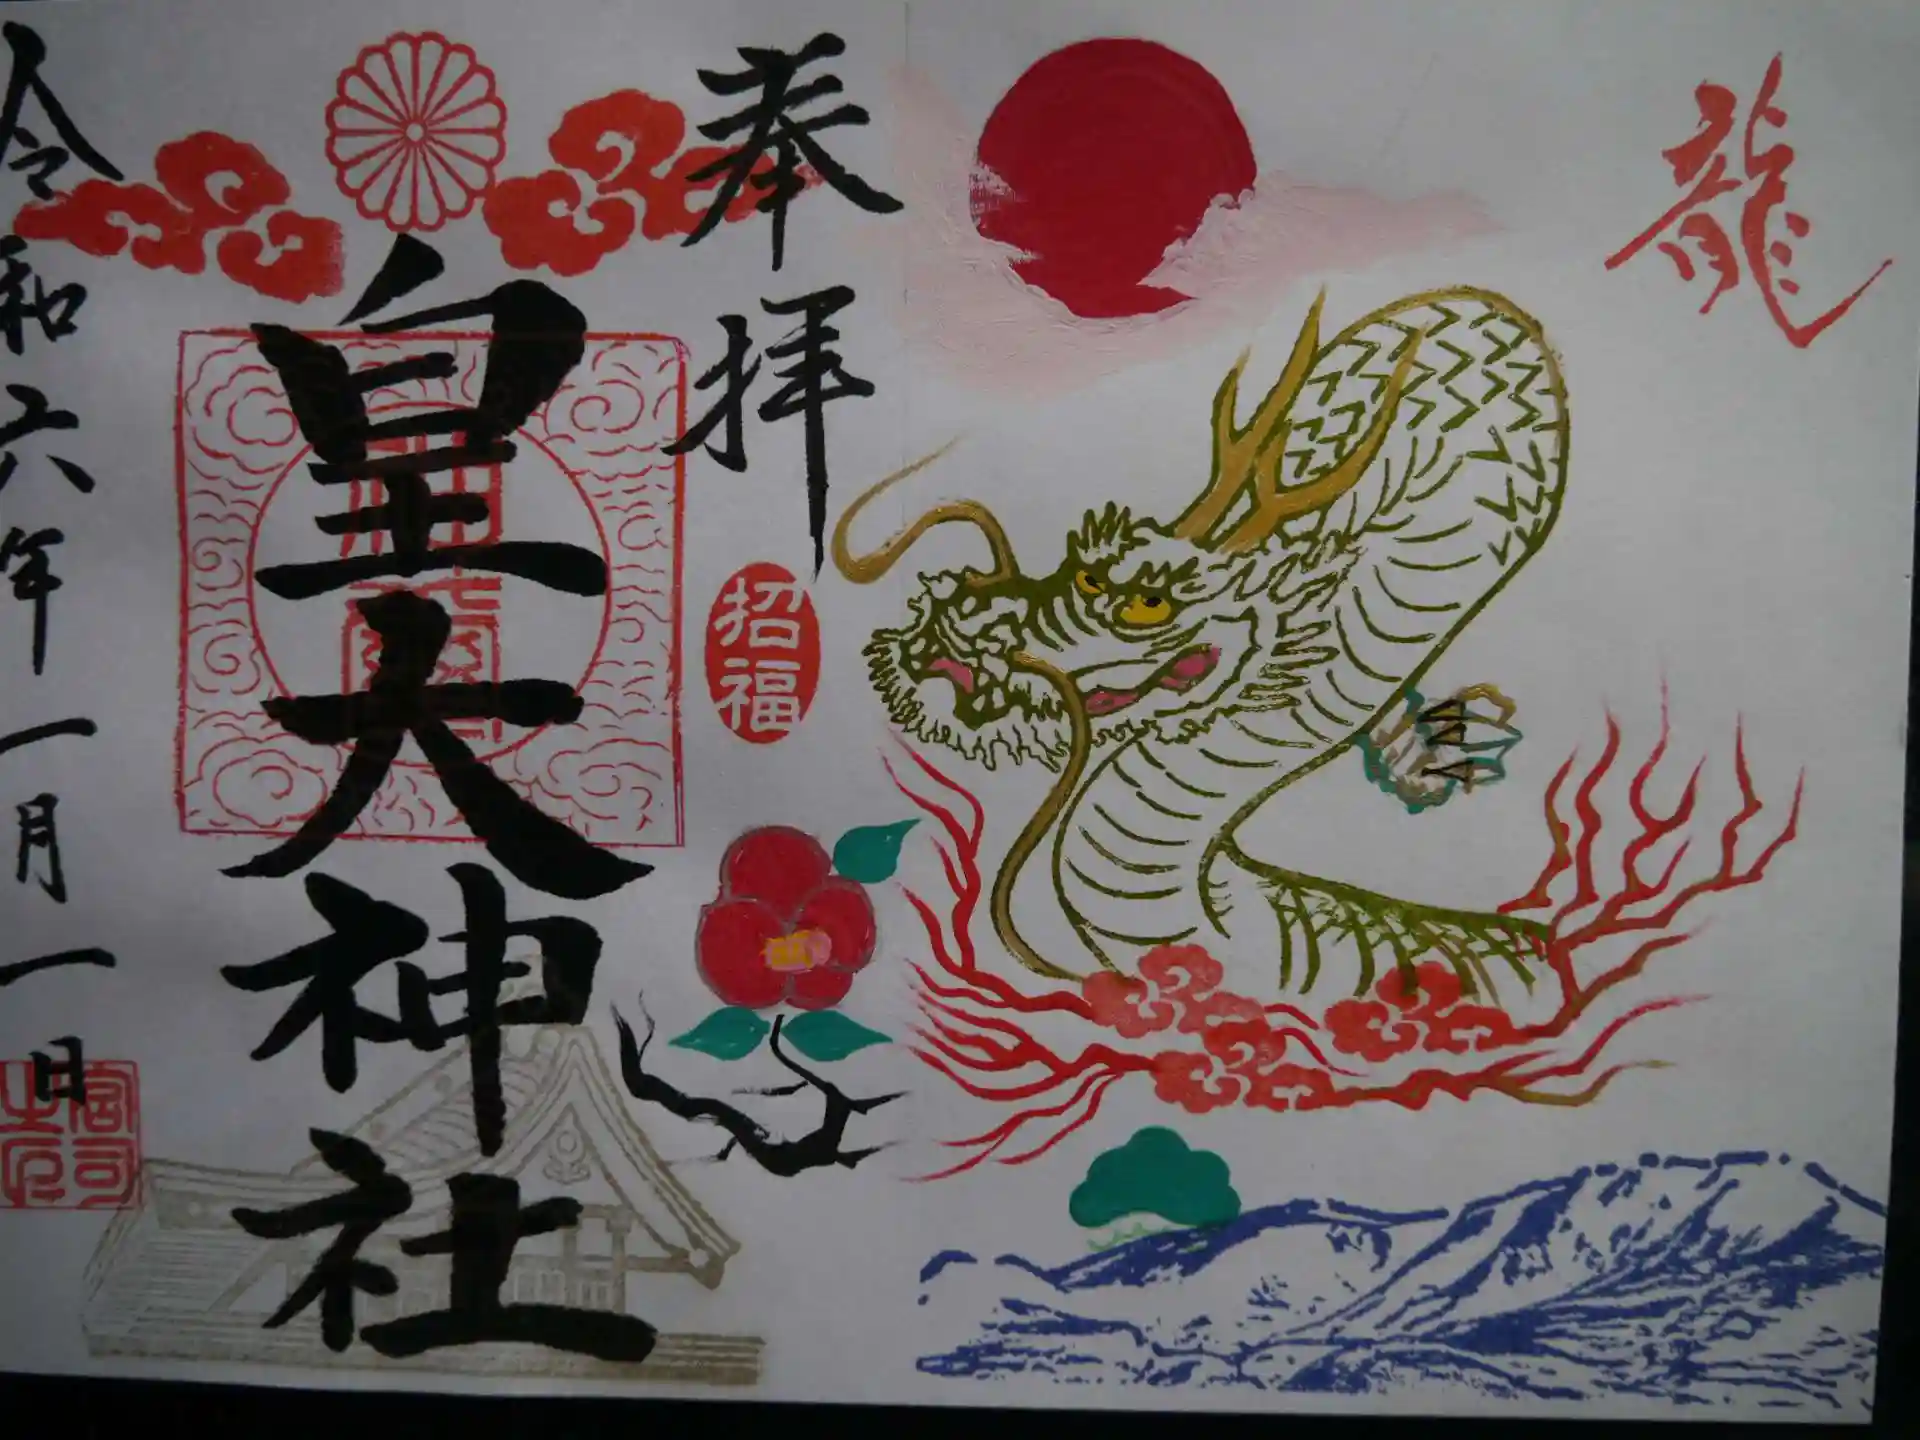 龍
奉拝
招福
皇大神社
令和六年一月一日
宮司之印